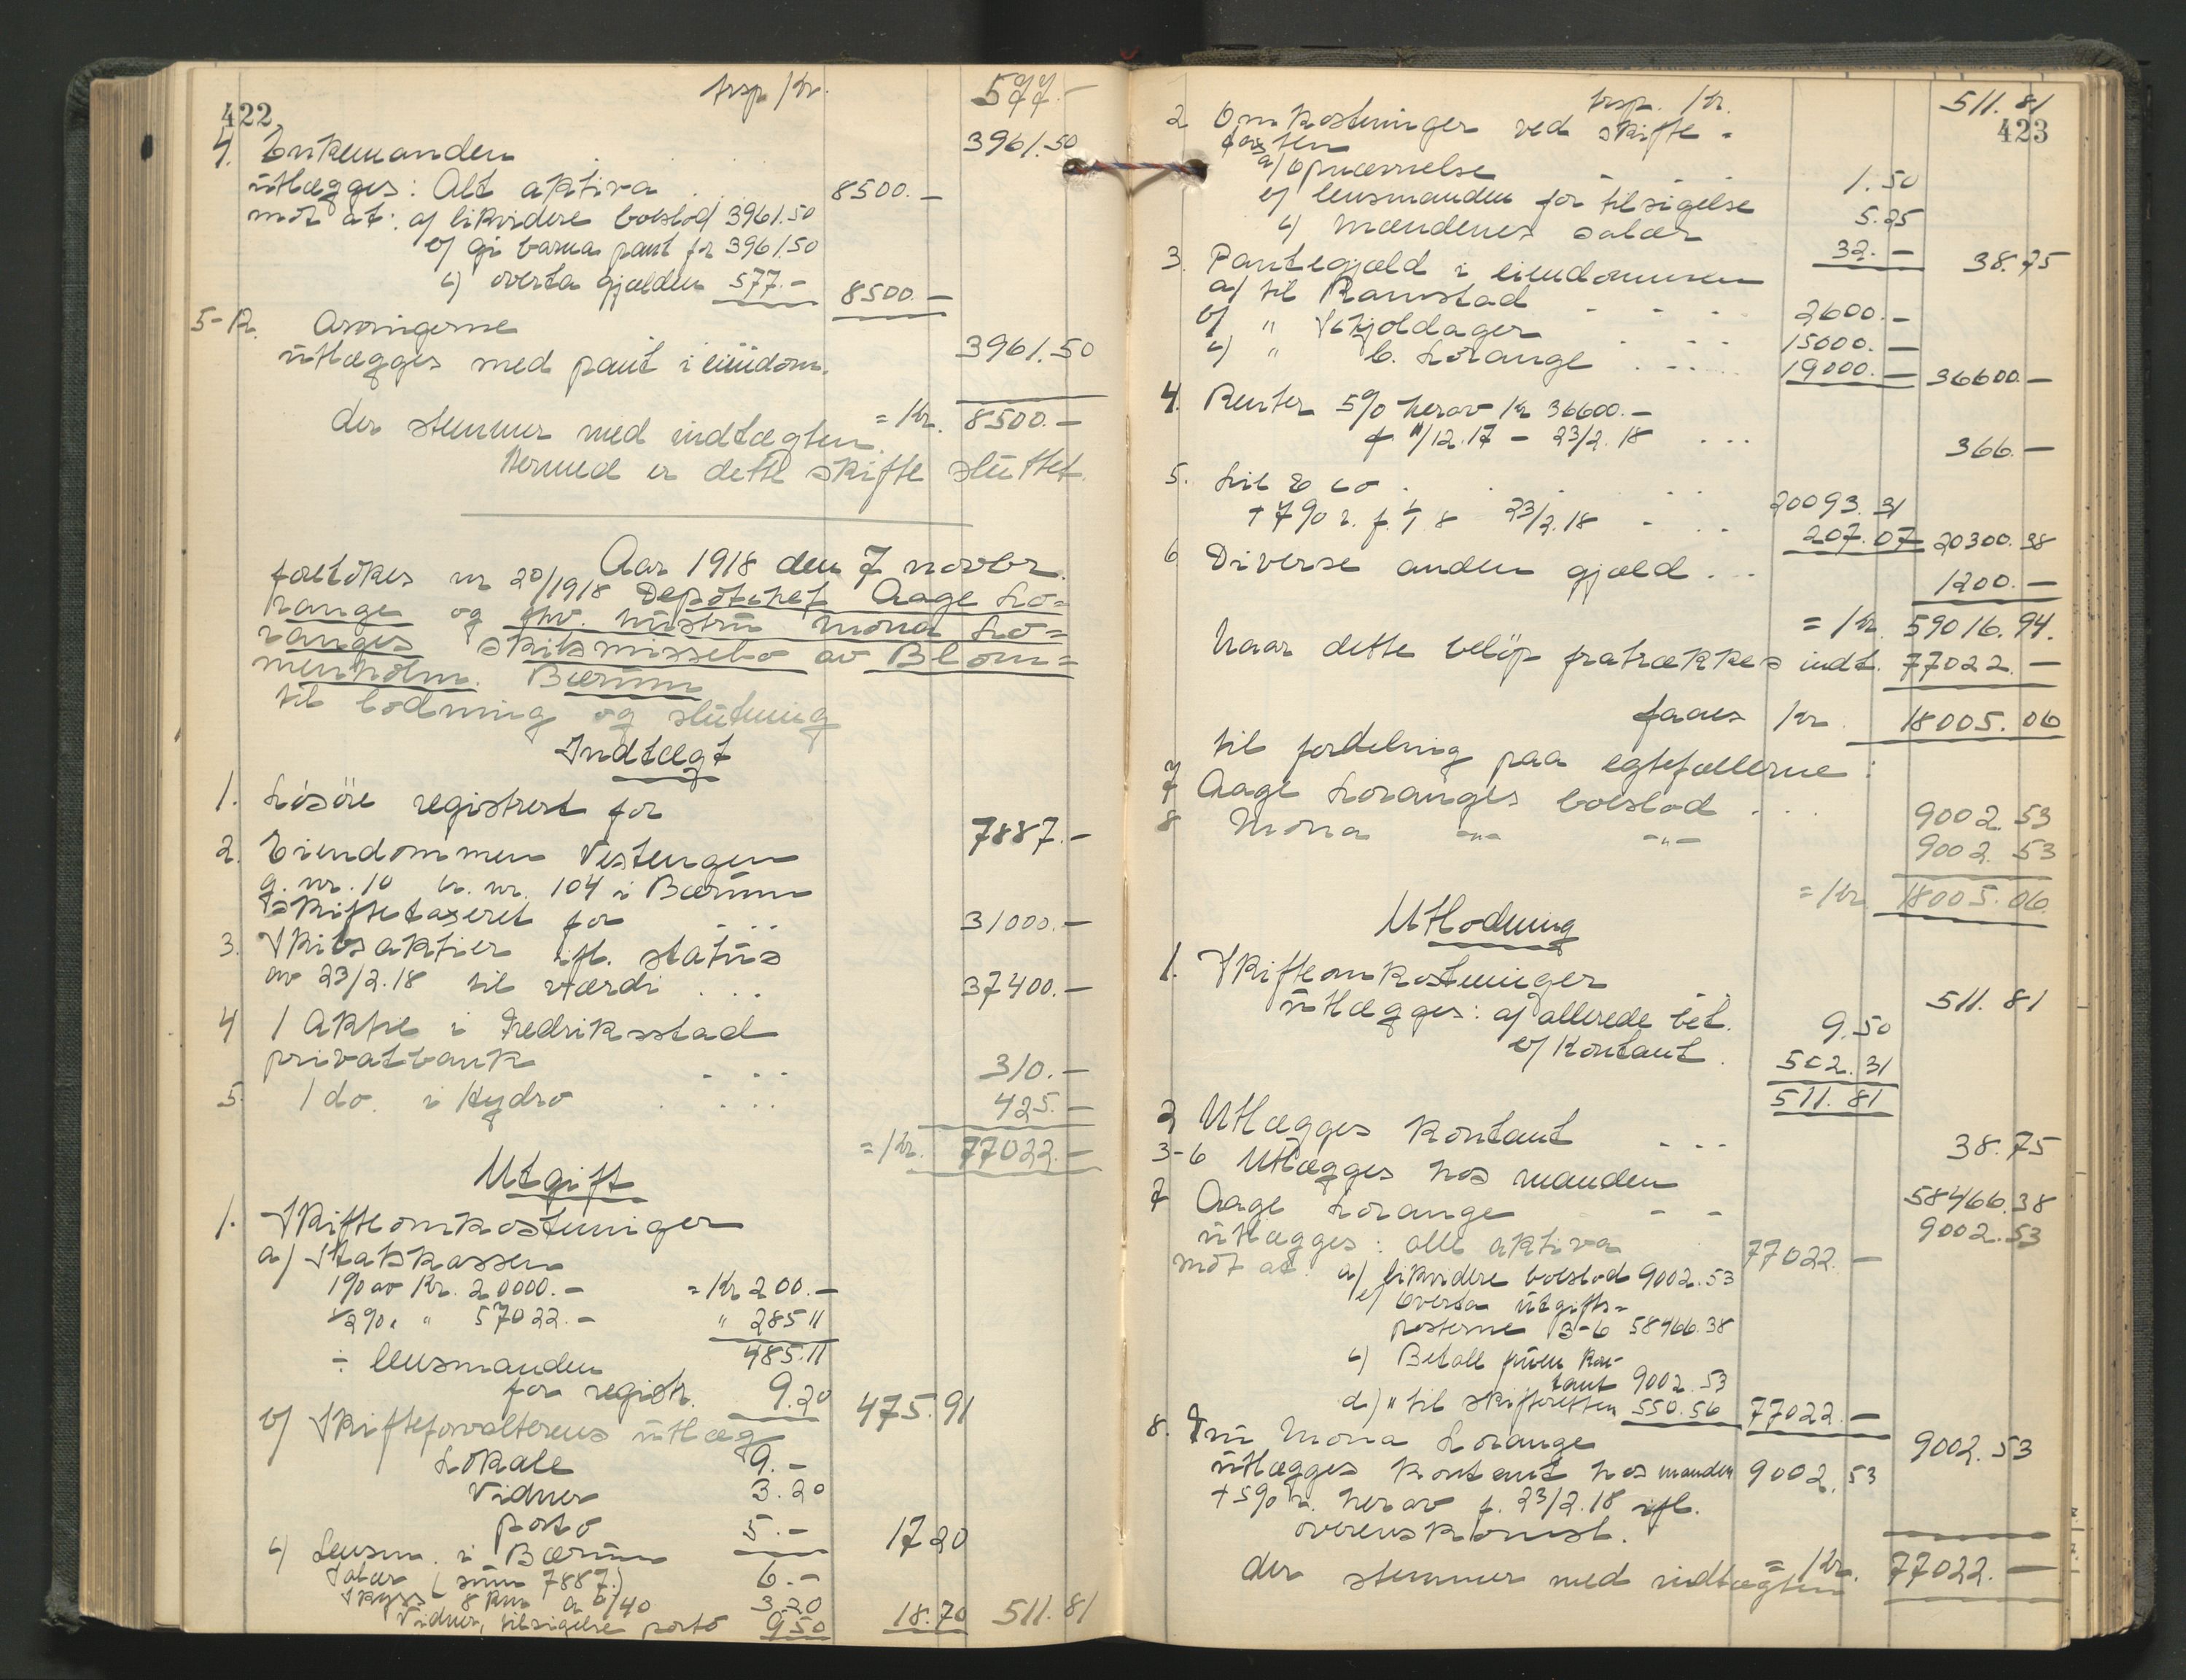 422
trsp. Kr. 577.-
4. Enkemanden . . . 3961.50
utlægges: Alt aktiva . . 8500.-
mot at: a) likvidere boeslod 3961.50
b) gi barna pant for 3961.50
c) overta gjælden 577.- 8500.-
5- Arvingerne 3961.50
utlægges med pant i eiendom.
= Kr. 8500.-
der stemmer med indtægten.
Hermed er dette skifte sluttet.
Aar 1918 den 7 novbr.
foretokes nr 20/1918 Depotchef Aage Lo=
range og frv. hustru Mona Lo=
ranges skilsmissebo av Blom=
menholm. Bærum
til lodning og slutning
Indtægt
1. Løsøre registrert for 7887.-
2. Eiendommen Vestengen
g. nr. 10 br. nr. 104 i Bærum
skiftetaxeret for . . . 31000.-
3. Skibsaktier ifl. status
av 23/2.18 til værdi . . . 37400.-
4 1 Aktie i Fredriksstad
privatbank . . . 310.-
5. 1 do. i Hydro . . . . 425.-
= Kr. 77022.-
Utgift
1. Skifteomkostninger
a) Statskassen
1% av Kr. 20000.- = Kr 200.-
1/2% " " 57022.- " 285 11
485.11
÷ lensmanden
for registr. 9.20 475.91
b) Skifteforvalterens utlæg
Lokale 9.-
Vidner 3.20
porto 5.- 17 20
c) Lensm. i Bærum
Salær (sum 7887.) 6.-
Skyss 8 km a 0/40 3.20
Vidner, tilsigelse porto 9.50 18.70 511.81
423
trsp. Kr. 511.81
2 Omkostninger ved skifte-
taxten
a) Opnævnelse . . . 1.50
b) lensmanden for tilsigelse 5.25
c) mændenes salær 32.- 38.75
3. Pantegjæld i eiendommen
a) til Ramstad . . . 2600.-
b) " Skjoldager . . . 15000.-
c) " C. Lorange . . . 19000.- 36600.-
4. Renter 5% herav Kr 36600.-
f. 11/12.17 - 23/2.18 . . . 366.-
5. Lie & Co . . . . 20093.31
+ 7% r. f. 1/1 8 23/2.18 - . . 207.07 20300.38
6 Diverse anden gjæld . . . 1200.-
= Kr. 59016.94.
Naar dette beløp fratrækkes indt. 77022.-
faaes Kr. 18005.06
til fordeling paa egtefællerne:
7 Aage Loranges boeslod . . . 9002.53
8 Mona -"- -"- 9002.53
= Kr. 18005.06
Utlodning
1. Skifteomkostninger . . 511.81
utlægges: a) allerede bet. 9.50
b) Kontant . 502.31
511.81
2 Utlægges kontant . . . 38.75
3-6 Utlægges hos manden 58466.38
7 Aage Lorange - - 9002.53
utlægges: alle aktiva . 77022.-
mot at. a) likvidere boeslod 9002.53
b) Overta utgifts=
posterne 3-6 58466.38
c) Betale fruen kon-
tant 9002.53
d) " til skifteretten 550.56 77022.-
8. Fru Mona Lorange 9002.53
utlægges kontant hos manden 9002.53
+ 5% r. herav f. 23/2.18 ifl.
overenskomst.
= Kr. 77022.-
der stemmer med indtægten